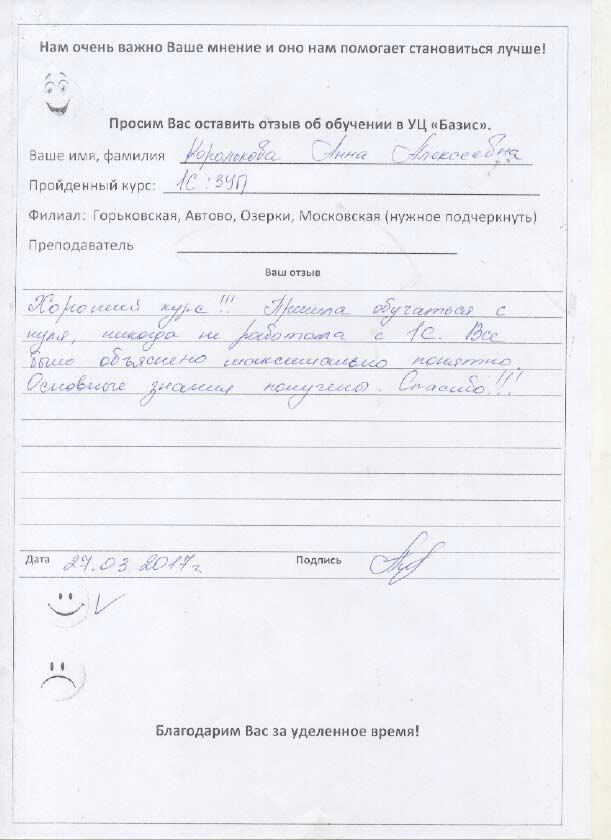 Нам очень важно Ваше мнение и оно нам помогает становиться лучше!
Просим Вас оставить отзыв об обучении в УЦ «Базис».
Ваше имя, фамилия Королькова Анна Алексеевна
Пройденный курс: 1С:ЗУП
Филиал: Горьковская, Автово, Озерки, Московская (нужное подчеркнуть)
Преподаватель
Ваш отзыв
Хороший курс!!! Пришла обучаться с
нуля, никогда не работала с 1С. Все
было объяснено максимально понятно.
Основные знания получены. Спасибо!!!
Дата 27.03.2017г. Подпись
Благодарим Вас за уделенное время!